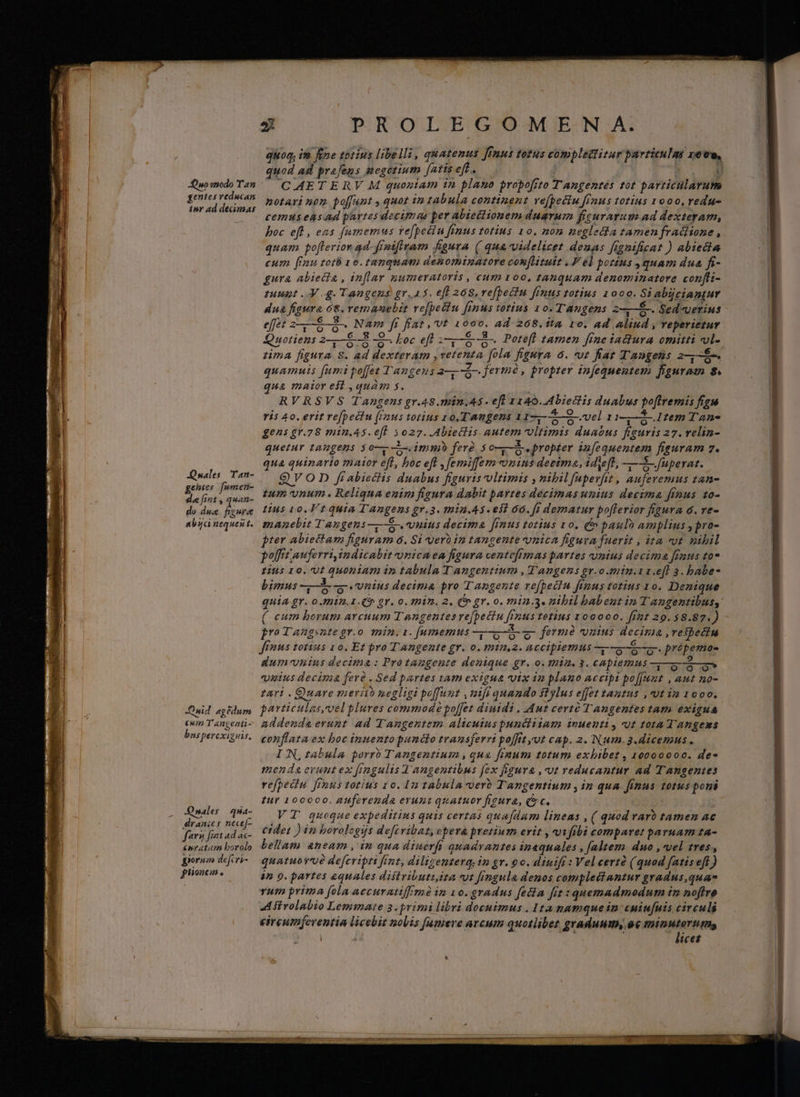 PROLEGOMENA.
quoq, in fine totius libelli, quatenus sinus totus complectitur particulas 1000,
quod ad præsens negotium satis est.
Quomodo Tan
gentes reducan
tur ad decimas
CAETERVM quoniam in plano proposito Tangentes tot particularum
notari non possunt, quot in tabula continent respectu sinus totius 1000, redu-
cemus eas ad partes decimas per abiectionem duarum figurarum ad dexteram,
hoc est, eas sumemus respectu sinus totius 10. non neglecta tamen fractione,
quam posterior ad sinistram figura (quæ videlicet denas significat) abiecta
cum sinu toto 10. tanquam denominatore constituit. Vel potius, quam duæ fi-
guræ abiectæ, instar numeratoris, cum 100. tanquam denominatore consti-
tuunt. V. g. Tangens gr. 15. est 268. respectu sinus totius 1000. Si abijciantur
duæ figuræ 68. remanebit respectu sinus totius 10. Tangens 2 6/10. Sed verius
esset 2 68/100. Nam si fiat, vt 1000. ad 268. ita 10. ad aliud, reperietur
Quotiens 2 680/1000. hoc est 2 68/100. Potest tamen sine iactura omitti vl-
tima figura 8. ad dexteram, retenta sola figura 6. vt fiat Tangens 2 6/10.
quamuis sumi posset Tangens 2 7/10. fermè, propter insequentem figuram 8.
quæ maior est, quàm 5.
RVRSVS Tangens gr. 48. min. 45. est 1140. Abiectis duabus postremis figu
ris 40. erit respectu sinus totius 10. Tangens 11 40/100. vel 11 4/10. Item Tan-
gens gr. 78 min. 45. est 5027. Abiectis autem vltimis duabus figuris 27. relin-
quetur tangens 50 2/10. immò ferè 50 3/10. propter insequentem figuram 7.
quæ quinario maior est, hoc est, semissem vnius decimæ, id est, 5/100. superat.
Quales Tan-
gentes sumen-
dæ sint, quan-
do duæ figuræ
abijci nequeũt.
QVOD si abiectis duabus figuris vltimis, nihil superfit, auferemus tan-
tum vnum. Reliqua enim figura dabit partes decimas unius decimæ sinus to-
tius 10. Vt quia Tangens gr. 3. min. 45. est 66. si dematur posterior figura 6. re-
manebit Tangens 6/10. vnius decimæ sinus totius 10. & paulò amplius, pro-
pter abiectam figuram 6. Si verò in tangente vnica figura fuerit, ita vt nihil
possit auferri, indicabit vnica ea figura centesimas partes vnius decimæ sinus to-
tius 10. vt quoniam in tabula Tangentium, Tangens gr. 0. min. 11. est 3. habe-
bimus 3/100. vnius decimæ pro Tangente respectu sinus totius 10. Denique
quia gr. 0. min. 1. & gr. 0. min. 2. & gr. 0. min. 3. nihil habent in Tangentibus,
(cum horum arcuum Tangentes respectu sinus totius 100000. sint 29. 58. 87.)
pro Tangente gr. 0 min. 1. sumemus 3/1000 fermè vnius decimæ, respectu
sinus totius 10. Et pro Tangente gr. 0. min. 2. accipiemus 6/1000. propemo-
dum vnius decimæ: Pro tangente denique gr. 0. min. 3. capiemus 9/1000
vnius decimæ ferè. Sed partes tam exiguæ vix in plano accipi possunt, aut no-
tari. Quare meritò negligi possunt, nisi quando stylus esset tantus, vt in 1000.
Quid agẽdum
cum Tangenti-
bus perexiguis.
particulas, vel plures commodè posset diuidi. Aut certè Tangentes tam exiguæ
addendæ erunt ad Tangentem alicuius puncti iam inuenti, vt tota Tangens
conflata ex hoc inuento puncto transferri possit, vt cap. 2. Num. 3. dicemus.
IN tabula porrò Tangentium, quæ sinum totum exhibet, 10000000. de-
mendæ erunt ex singulis Tangentibus sex figuræ, vt reducantur ad Tangentes
respectu sinus totius 10. In tabula verò Tangentium, in qua sinus totus poni
tur 100000. auferendæ erunt quatuor figuræ, &c.
Quales qua-
drantes neces-
sarij sint ad ac-
curatam horolo
giorum descri-
ptionem.
VT quoque expeditius quis certas quasdam lineas, (quod rarò tamen ac
cidet) in horologijs describat, operæ pretium erit, vt sibi comparet paruam ta-
bellam æneam, in qua diuersi quadrantes inæquales, saltem duo, vel tres,
quatuorvè descripti sint, diligenterq; in gr. 90. diuisi: Vel certè (quod satis est)
in 9. partes æquales distributi, ita vt singulæ denos complectantur gradus, qua-
rum prima sola accuratissimè in 10. gradus secta sit: quemadmodum in nostro
Astrolabio Lemmate 3. primi libri docuimus. Ita namque in cuiusuis circuli
circumferentia licebit nobis sumere arcum quotlibet graduum, ac minutorum,
licet